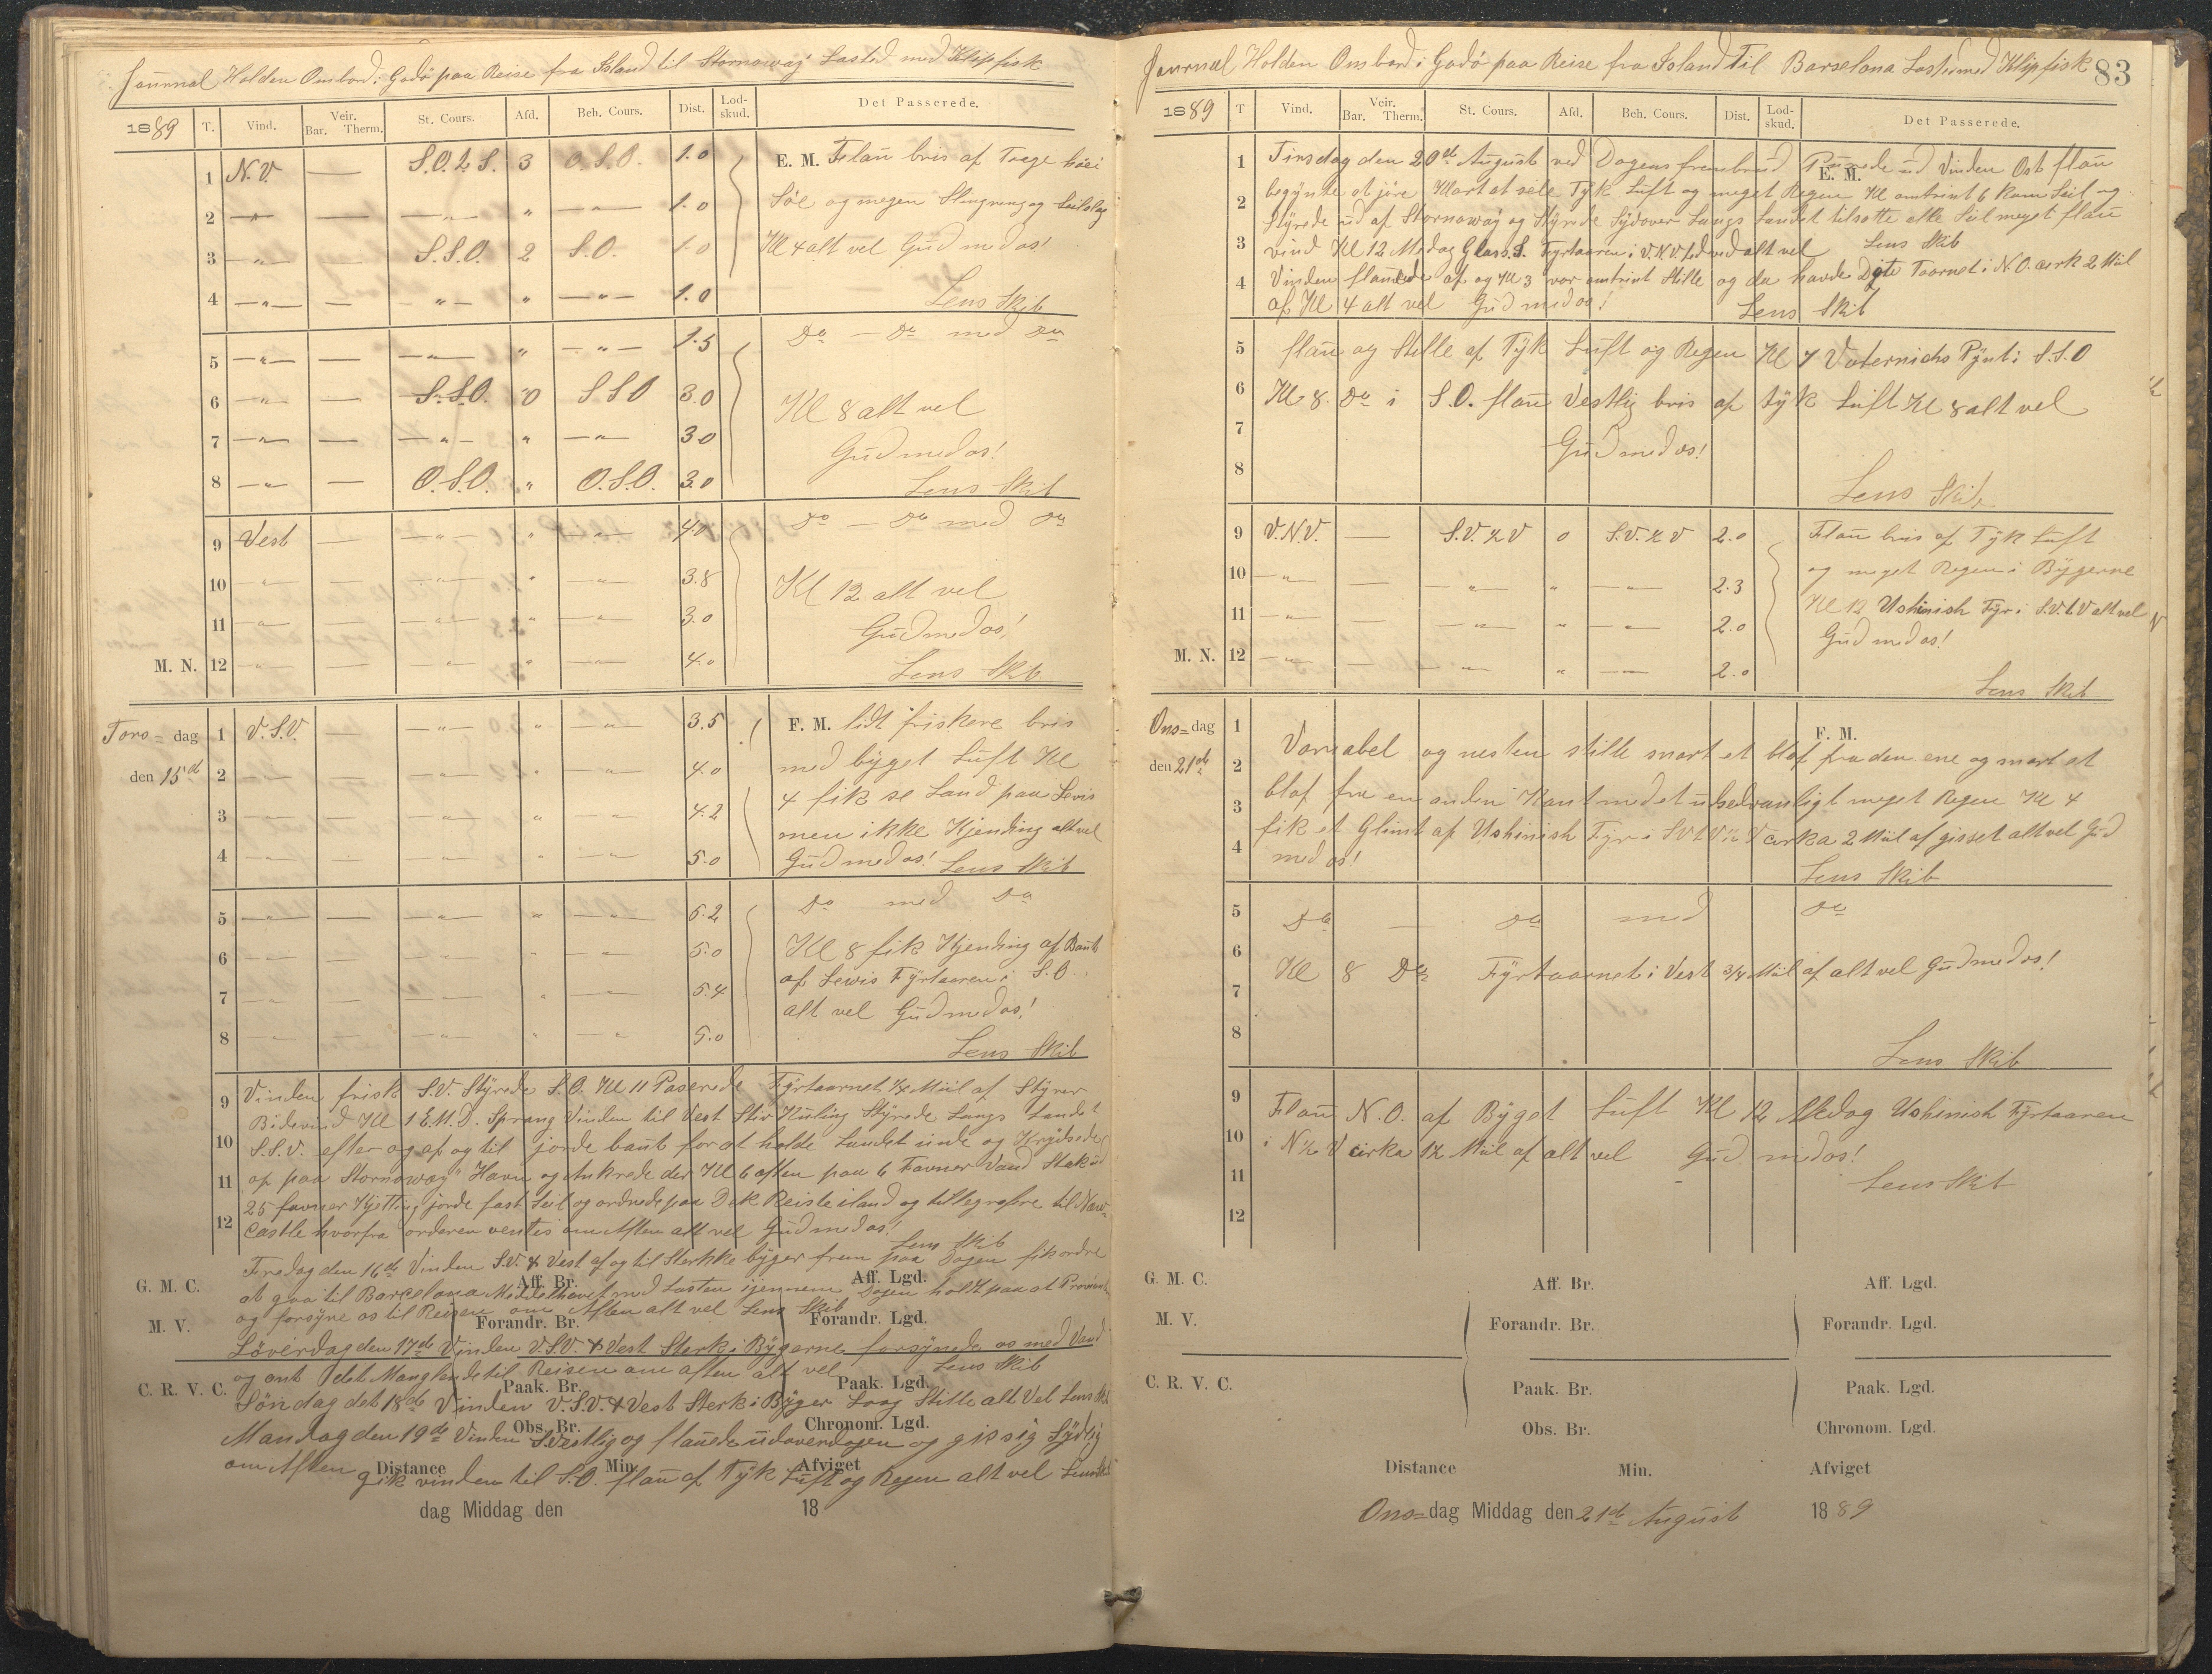 Journal Holden Ombord i Gadø paa Reise fra Island til Stornoway Lasted med Klipfisk
1889 T. Vind. Veir. Bar. Therm. St. Cours. Afd. Beh. Cours. Dist. Lod-skud. Det Passerede.
1 N.V. — S.O.t.S. 3 O.S.O. 1.0 E. M. Flau bris af Taage höei
2 —"— — —"— " —"— 1.0 Söe og megen Slingring og Seilslag
3 —"— — S.S.O. 2 S.O. 1.0 Kl 4 alt vel Gud med os!
4 —"— — —"— " —"— 1.0 Lens Skib
5 —"— — —"— " —"— 1.5 Do — Do med Do
6 —"— — S.S.O. 0 S S O 3.0 Kl 8 alt vel
7 —"— — —"— " —"— 3.0 Gud med os!
8 —"— — O.S.O. " O.S.O. 3.0 Lens Skib
9 Vest — —"— " —"— 4.0 Do — Do med Do
10 —"— — —"— " —"— 3.8 Kl 12 alt vel
11 —"— — —"— " —"— 3.0 Gud med os!
M. N. 12 —"— — —"— " —"— 4.0 Lens Skib
Tors- dag 1 V.S.V. — —"— " —"— 3.5 F. M. lidt friskere bris
den 15d 2 —"— — —"— " —"— 4.0 med byget Luft Kl
3 —"— — —"— " —"— 4.2 4 fik se Land paa Levis
men ikke Kjending alt vel
4 —"— — —"— " —"— 5.0 Gud med os! Lens Skib
5 —"— — —"— " —"— 5.2 Do med Do
6 —"— — —"— " —"— 5.0 Kl 8 fik Kjending af Baut
7 —"— — —"— " —"— 5.4 af Lewis Fyrtaaren i S.O.
alt vel Gud med os!
8 —"— — —"— " —"— 5.0 Lens Skib
9 Vinden frisk S.V. Styrede S.O. Kl 11 Paserede Fyrtaarnet 1/4 Miil af Styrer
Bidevind Kl 1 E.M.D. Sprang Vinden til Vest Stiv Kuling Styrede Langs Landet
10 S.S.V. efter og af og til jorde baut for at holde Landet inde og Krydsede
11 op paa Stornoway Havn og Ankrede der Kl 6 aften paa 6 Favner Vand Stak ud
25 favner Kjetting jorde fast Seil og ordnede paa Dek Reiste iland og tellegrafere til New-
12 castle hvorfra orderen ventes om Aften alt vel Gud med os!
Lens Skib
Fredag den 16de Vinden S.V. & Vest af og til Sterkke byger frem paa Dagen fik ordre
G. M. C. Aff. Br. Aff. Lgd.
at gaa til Barcelona Middelhavet med Lasten ijennem Dagen holdt paa at Proviant
og forsyne os til Reisen om Aften alt vel Lens Skib
M. V. Forandr. Br. Forandr. Lgd.
Löverdag den 17de Vinden V.S.V. & Vest Sterk i Bygerne forsynede os med Vand
og ant det Manglende til Reisen om aften alt vel Lens Skib
C. R. V. C. Paak. Br. Paak. Lgd.
Söndag det 18de Vinden V.S.V & Vest Sterk i Byger Laag Stille alt Vel Lens Skib
Obs. Br. Chronom. Lgd.
Mandag den 19de Vinden S.Vestlig og flauede udover dagen og gik sig Sydlig
Distance Min. Afviget
om Aften gik vinden til S.O. flau af Tyk Luft og Regen alt vel Lens Skib
dag Middag den 18
Journal Holden Ombord i Gadø paa Reise fra Island Til Barselona Lasted med Klipfisk 83
1889 T Vind. Veir. Bar. Therm. St. Cours. Afd. Beh. Cours. Dist. Lod-skud. Det Passerede.
E. M.
1 Tirsdag den 20de August ved Dagens frembrud Purrede ud Vinden Ost flau
2 begynte at jöre Klart at seile Tyk Luft og meget Regen Kl omtrint 6 kom Seil og
Styrede ud af Stornoway og Styrede Sydover Langs Landet tilsatte alle Seil meget flau
3 vind Kl 12 Medag Glass.S. Fyrtaaren i V.N.V. ted ved alt vel Lens Skib
4 Vinden flauede af og Kl 3 var omtrint Stille og da havde Dyte Taarnet i N.O. cirk 2 Mil
af Kl 4 alt vel Gud med os! Lens Skib
5 flau og Stille af Tyk Luft og Regen Kl 7 Vaternichs Pynt i S.S.O
6 Kl. 8. Do i S.O. flau Vestlig bris af tyk Luft Kl 8 alt vel
7 Gud med os!
8 Lens Skib
9 V.N.V. — S.V.½V 0 S.V.½V 2.0 Flau bris af Tyk Luft
10 —"— — —"— " —"— 2.3 og meget Regen i Bygerne
11 —"— — —"— " —"— 2.0 Kl 12 Ushinish Fyr i S.V.t.V alt vel
Gud med os!
M. N. 12 —"— — —"— " —"— 2.0 Lens Skib
Ons- dag 1 F. M.
den 21de 2 Variabel og nesten stille snart et blaf fra den ene og snart et
3 blaf fra en anden Kant med et usedvanligt meget Regen Kl 4
4 fik et Glimt af Ushinish Fyr i SVtV½V cirka 2 Miil af gisset alt vel Gud
med os! Lens Skib
5 Do — Do med Do
6
7 Kl 8 Do Fyrtaarnet i Vest 3/4 Miil af alt vel Gud med os!
8 Lens Skib
9 Flau N.O. af Byget Luft Kl 12 Medag Ushinish Fyrtaaren
10 i N½V cirka 1½ Miil af alt vel Gud med os!
11 Lens Skib
12
G. M. C. Aff. Br. Aff. Lgd.
M. V. Forandr. Br. Forandr. Lgd.
C. R. V. C. Paak. Br. Paak. Lgd.
Obs. Br. Chronom. Lgd.
Distance Min. Afviget
Ons- dag Middag den 21de August 1889